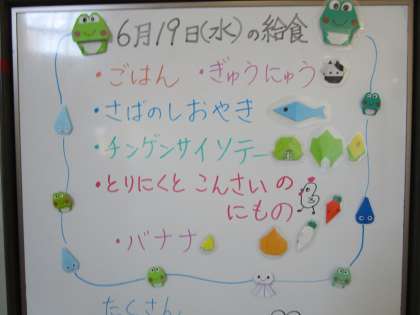 6月19日(水)の給食
・ごはん ・ぎゅうにゅう
・さばのしおやき
・チンゲンサイソテー
・とりにくと こんさいの
にもの
・バナナ
たくさん